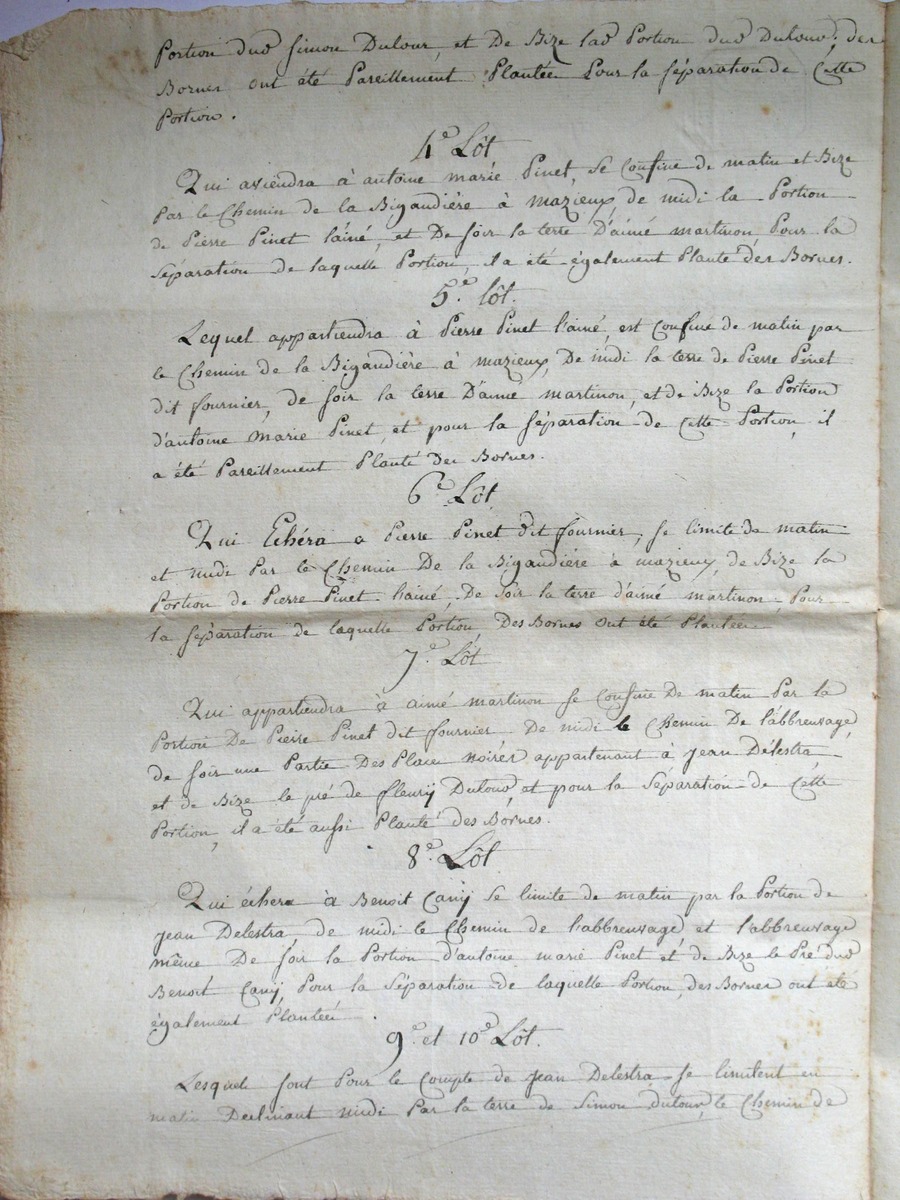 Portion dud Simon Dutour, et De Bize lad Portion dud Dutour. des
Bornes ont été Pareillement Plantée Pour la séparation de Cette
Portion.
4e Lôt
Qui aviendra à antoine marie Pinet, se Confine de matin et Bize
Par le Chemin de la Bigaudière à mazieux, de midi la Portion
de Pierre Pinet lainé, et De soir la terre D'aimé martinon, Pour la
séparation de laquelle Portion, il a été également Planté des Bornes.
5e lôt.
Lequel appartiendra à Pierre Pinet l'ainé, est Confiné de matin par
le Chemin de la Bigaudière à mazieux, De midi la terre de Pierre Pinet
dit fournier, de soir la terre D'aimé martinon, et de Bize la Portion
d'antoine Marie Pinet, et pour la séparation de Cette Portion, il
a été Pareillement Planté des Bornes.
6e Lôt
Qui Echéra a Pierre Pinet dit fournier, se limite de matin
et midi Par le Chemin De la Bigaudière à mazieux, de Bize la
Portion de Pierre Pinet lainé, De soir la terre d'aimé martinon Pour
la séparation de laquelle Portion, Des Bornes ont été Plantée
7e Lôt
Qui appartiendra à aimé martinon se Confine De matin Par la
Portion De Pierre Pinet dit fournier De midi le Chemin De l'abbreuvage
de soir une Partie Des Places noires appartenant à Jean Délestra
et de Bize le pré de fleury Dutour, et pour la Séparation de Cette
Portion, il a été aussi Planté des Bornes.
8e Lôt
Qui échera à Benoit Cany se limite de matin par la Portion de
Jean Delestra, de midi le Chemin de l'abbreuvage et l'abbreuvage
même De soir la Portion d'antoine marie Pinet et de Bize le Pré dud
Benoit Cany Pour la Séparation de laquelle Portion, des Bornes ont été
également Plantée.
9e et 10e Lôt.
Lesquels sont Pour le Compte de Jean Delestra se limitent en
matin Declinant midi Par la terre de Simon dutour, le Chemin de